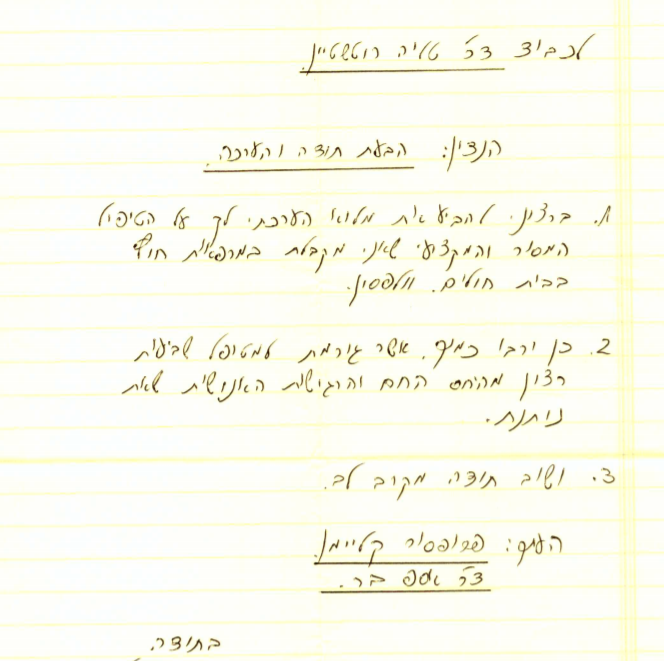 לכביד דר' טליה רוטשטיין.
הנדון: הבעת תודה והערכה.
1. ברצוני להביע את מלוא הערכתי לך על הטיפול
המסור והמקצועי שאני מקבלת במרפאות חוץ
בבית חולים. וולפסון.
2. כן ירבו כמוך. אשר גורמת למטופל שביעות
רצון מהיחס החם והרגישות האנושית שאת
נותנת.
3. ושוב תודה מקרב לב.
העתק: פרופסור קליימן.
דר' אסף בר.
בתודה.